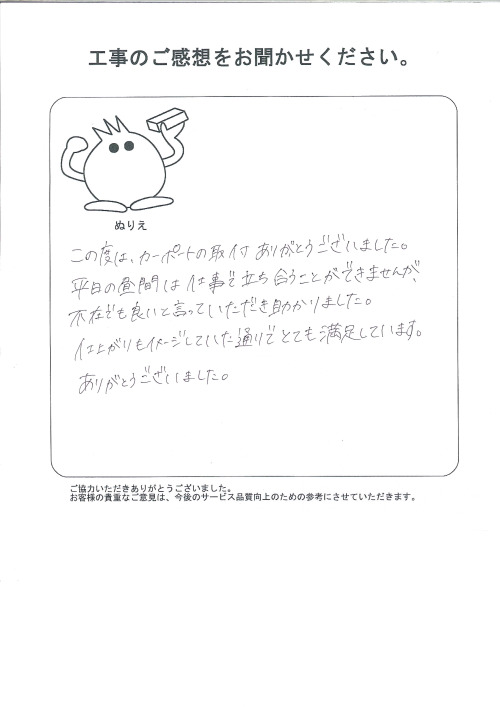 工事のご感想をお聞かせください。
ぬりえ
この度は、カーポートの取付ありがとうございました。
平日の昼間は仕事で立ち合うことができませんが、
不在でも良いと言っていただき助かりました。
仕上がりもイメージしていた通りでとても満足しています。
ありがとうございました。
ご協力いただきありがとうございました。
お客様の貴重なご意見は、今後のサービス品質向上のための参考にさせていただきます。